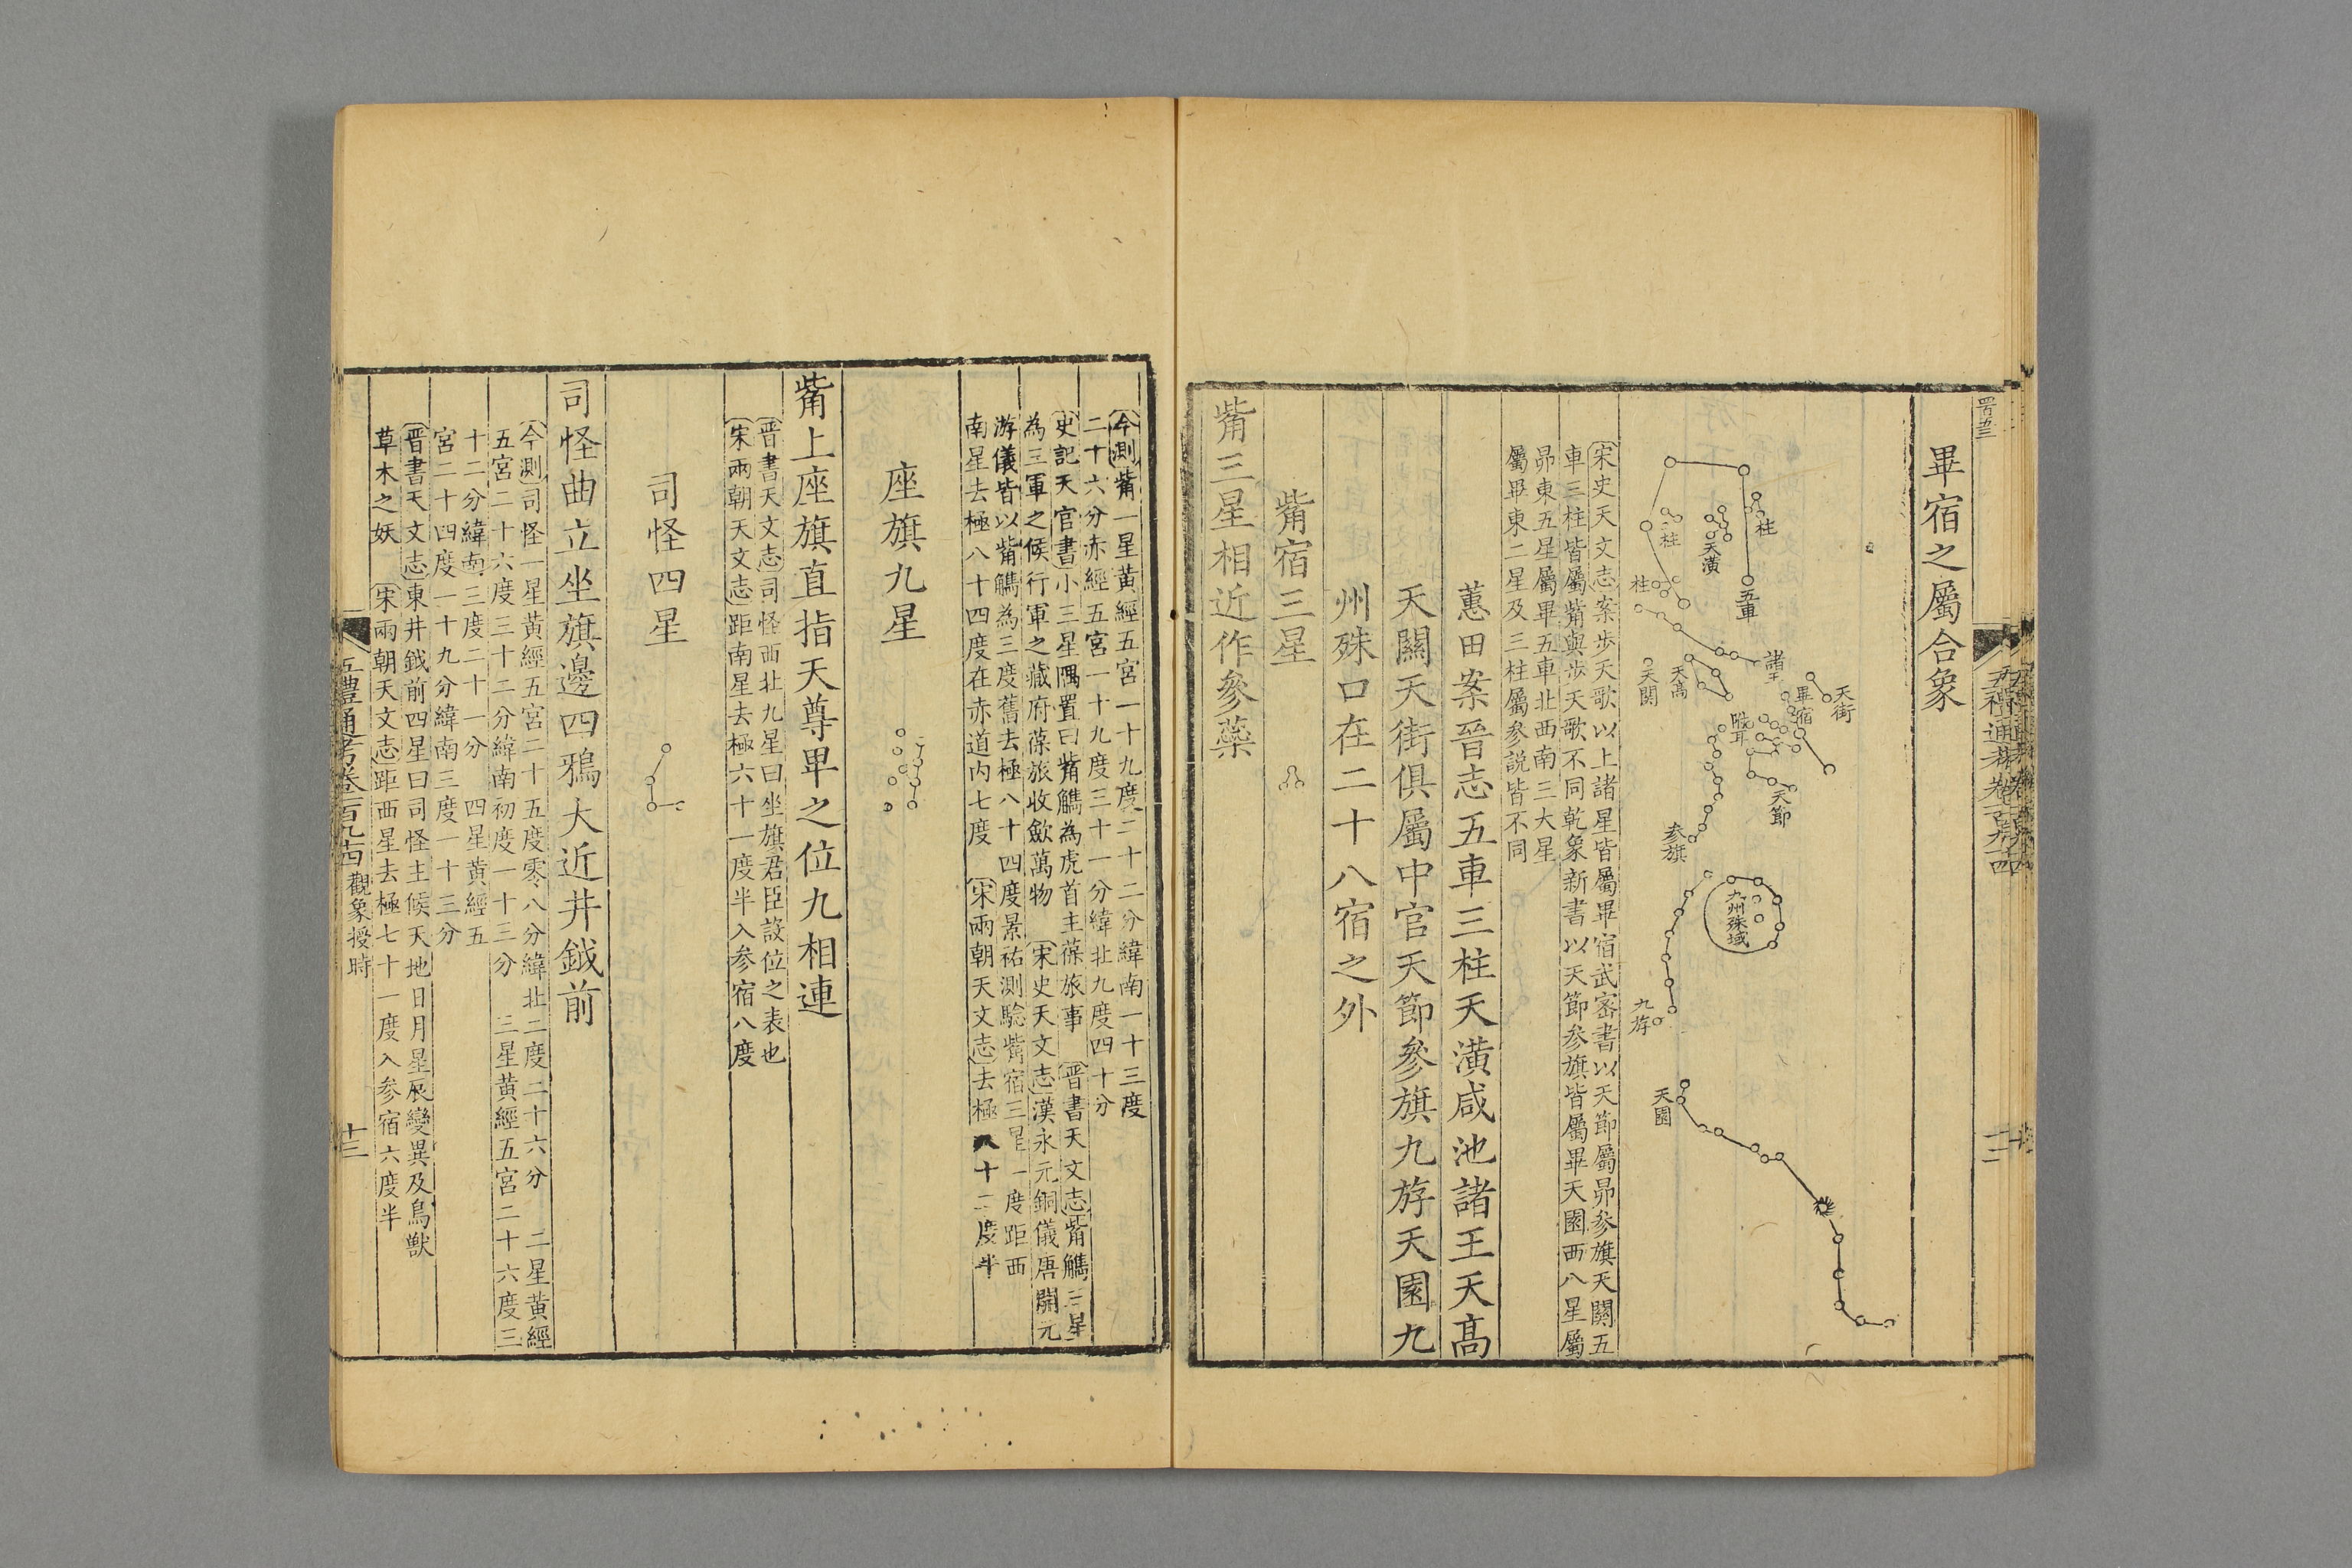 畢宿之屬合象
柱
柱
柱
天潢
五車
諸王
天高
天關
天街
畢宿
附耳
天節
參旗
九州殊域
九斿
天園
宋史天文志案步天歌以上諸星皆屬畢宿武密書以天節屬昴參旗天關五
車三柱皆屬觜與步天歌不同乾象新書以天節參旗皆屬畢天園西八星屬
昴東五星屬畢五車北西南三大星
屬畢東二星及三柱屬參說皆不同
蕙田案晉志五車三柱天潢咸池諸王天高
天關天街俱屬中官天節參旗九斿天園九
州殊口在二十八宿之外
觜宿三星
觜三星相近作參蘂
今測觜一星黃經五宮一十九度二十二分緯南一十三度
二十六分赤經五宮一十九度三十一分緯北九度四十分
史記天官書小三星隅置曰觜觿為虎首主葆旅事 晉書天文志觜觿三星
為三軍之候行軍之藏府葆旅收斂萬物 宋史天文志漢永元銅儀唐開元
游儀皆以觜觿為三度舊去極八十四度景祐測驗觜宿三星一度距西
南星去極八十四度在赤道內七度 宋兩朝天文志去極八十二度半
座旗九星
觜上座旗直指天尊卑之位九相連
晉書天文志司怪西北九星曰坐旗君臣設位之表也
宋兩朝天文志距南星去極六十一度半入參宿八度
司怪四星
司怪曲立坐旗邊四鴉大近井鉞前
今測司怪一星黃經五宮二十五度零八分緯北二度二十六分 二星黃經
五宮二十六度三十二分緯南初度一十三分 三星黃經五宮二十六度三
十二分緯南三度二十一分 四星黃經五
宮二十四度一十九分緯南三度一十三分
晉書天文志東井鉞前四星曰司怪主候天地日月星辰變異及鳥獸
草木之妖 宋兩朝天文志距西星去極七十一度入參宿六度半
五禮通考卷一百九十四 觀象授時
十三